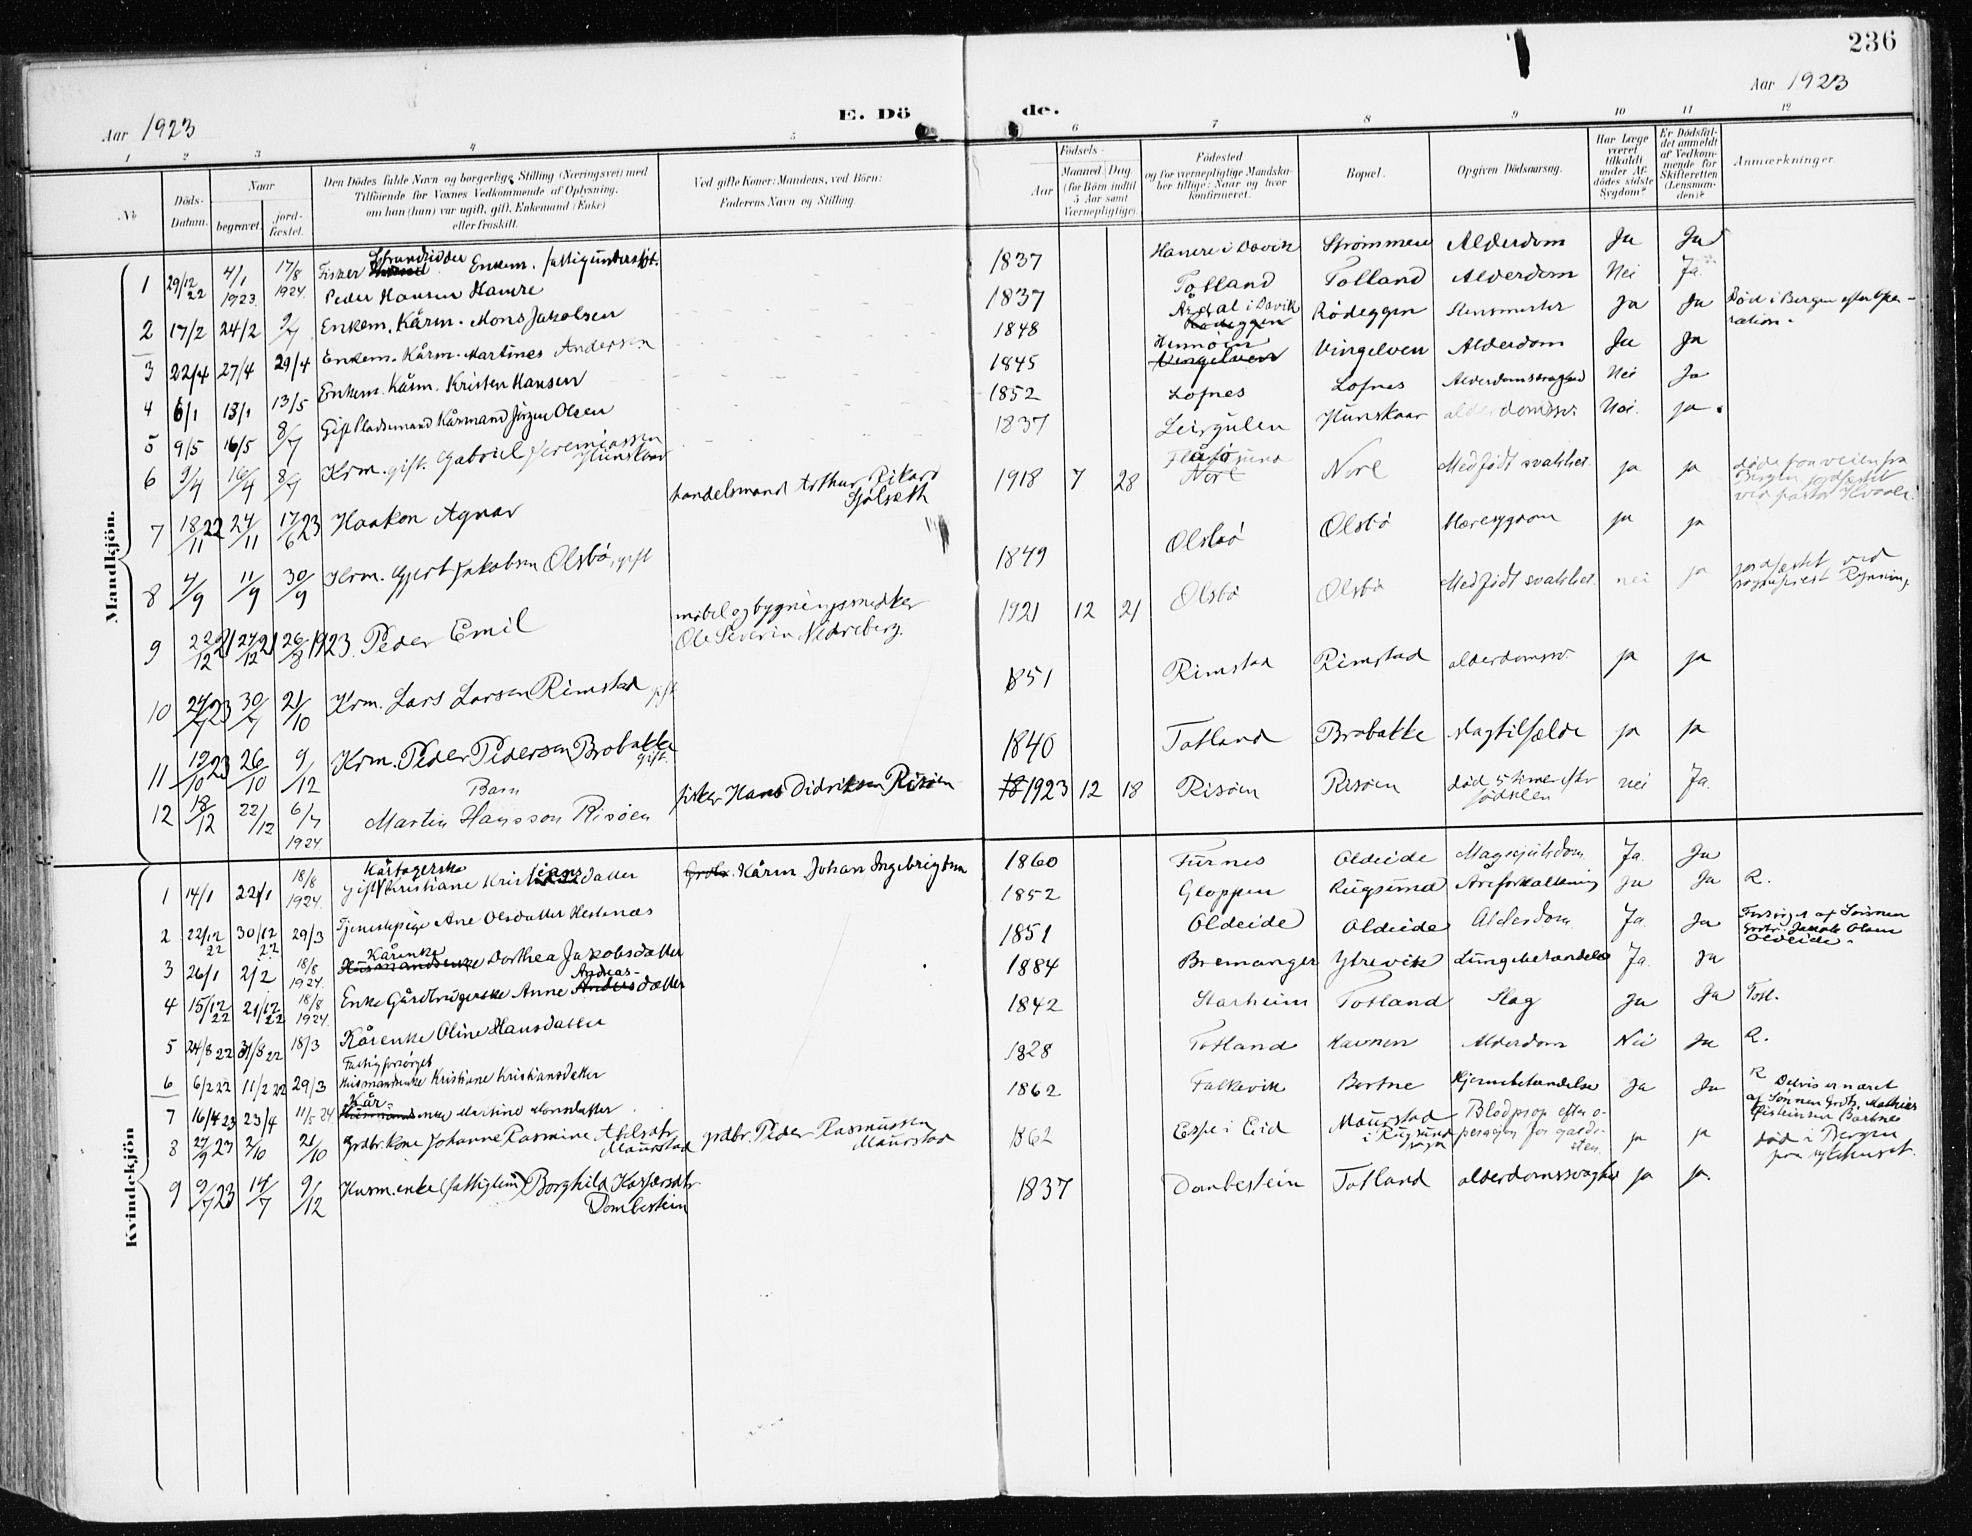 236
Aar 1923
E. Dö
de.
Aar 1923
1 2 3 4 5 6 7 8 9 10 11 12
No
Döds-Datum.
Naar
begravet.
jord-fæstet.
Den Dödes fulde Navn og borgerlige Stilling (Næringsvei) med
Tilföiende for Voxnes Vedkommende af Oplysning,
om han (hun) var ugift, gift, Enkemand (Enke)
eller fraskilt.
Ved gifte Koner: Mandens, ved Börn:
Faderens Navn og Stilling.
Födsels-
Aar
Maaned Dag
(for Börn indtil
5 Aar samt
Værnepligtige).
Födested
og for værnepligtige Mandska-
ber tillige: Naar og hvor
konfirmeret.
Bopæl.
Opgiven Dödsaarsag.
Har Læge
været
tilkaldt
under Af-
dödes sidste
Sygdom?
Er Dödsfal-
det anmeldt
af Vedkom-
mende for
Skifteretten
(Lensman-
den)?
Anmærkninger.
Mandkjön.
1 29/12 22 4/1 1923 17/8 1924 Fisker Strandsidder Enkem. fattigunderst. Peder Hansen Hamre 1837 Hamre i Davik Strömmen Alderdom Ja Ja
2 17/2 24/2 9/7 Enkem. Kårm. Mons Jakobsen 1837 Totland Totland Alderdom Nei Ja
3 22/4 27/4 29/4 Enkem. Kårm. Martines Andersen 1848 Årdal i Davik Rödeggen Rödeggen Ja Ja Död i Bergen efter Operation.
4 6/1 13/1 13/5 Enkem. Kårm. Kristen Hansen 1845 Vingelven Vingelven Alderdom Ja Ja
5 9/5 16/5 8/7 Gift Pladsemand Kårmand Jörgen Olsen 1852 Lofnes Lofnes Alderdomssvaghed Nei Ja
6 9/4 16/4 8/7 Krm. gift. Gabriel Jeremiassen Hunskaar 1837 Leirgulen Hunskaar alderdomssv. Nei. ja.
7 18/11 22 24/11 17/6 23 Haakon Agnar handelsmand Arthur Rikard Sjölseth 1918 7 28 Nore Nore Medfödt svakhet ja ja döde paa veien fra Bergen jordfæstet ved pastor
8 4/9 11/9 30/9 Krm. Gjert Jakobsen Olsbö, gift 1849 Olsbö Olsbö ja ja
9 22/12 21 27/12 21 26/8 1923. Peder Emil möbel og bygningssnedker Ole Severin Nedreberg. 1921 12 21 Olsbö Olsbö Medfödt svakhet nei ja jordfæstet ved sogneprest Rynning
10 24/7 23 30/7 21/10 Krm. Lars Larsen Rimstad gift 1851 Rimstad Rimstad alderdomssv. ja ja
11 19/10 23 26/10 9/12 Krm. Peder Pedersen Brobakke gift. 1840 Totland Brobakke slagtilfælde ja ja
12 18/12 22/12 6/7 1924 Barn Martin Hansson Risöen fisker Hans Didriksen Risöen 18 1923 12 18 Risöen Risöen död 5 timer efter födselen nei Ja.
Kvindekjön
1 14/1 22/1 18/8 1924. Kårtagerske gift Kristiane Kristiansdatter Grdbr. Kårm Johan Ingebrigtsen 1860 Furnes Oldeide Magesykdom Ja. Ja
2 22/12 22 30/12 22 29/3 Tjenestepige Ane Olsdatter Hestenæs 1852 Gloppen Rugsund Åreforkalkning Ja Ja R.
3 26/1 2/2 18/8 1924. Husmandsenke Kårenke Dorthea Jakobsdatter 1851 Oldeide Oldeide Alderdom Ja. Ja Forsörget af Sönnen Grdbr. Jakob Olsen Oldeide.
4 15/12 22 21/12 22 18/8 1924. Enke Gårdbrugerske Anne Anders Andreas-datter 1884 Bremanger Ytrevik Lungebetændelse Ja. Ja
5 24/8 22 31/8 22 18/3 Kårenke Oline Hansdatter 1842 Starheim Totland Slag Ja Ja Totl.
6 6/2 22 11/2 22 29/3 Fattigforsörget Husmandsenke Kristiane Kristiansdatter 1828 Totland Havnen Alderdom Nei Ja R.
7 16/4 23 23/4 11/5 24 Husmands Kår-enke Martine Monsdatter 1862 Falkevik Bortne Hjernebetændelse Ja Ja R Delvis ernæret af Sönnen Grdbr. Mathias Eisteinsen Bortne
8 27/9 23 2/10 21/10 Grdbr. kone Johanne Rasmine Abelsdtr Maurstad grdbr. Peder Rasmussen Maurstad 1862 Espe i Eid Maurstad i Rugsund sogn Blodprop efter operasjon for galdesten. ja ja död i Bergen paa sykehuset.
9 9/7 23 14/7 9/12 Husm. enke (fattiglem) Borghild Kaspersdtr Dombestein 1837 Dombestein Totland alderdomssvaghet ja ja.